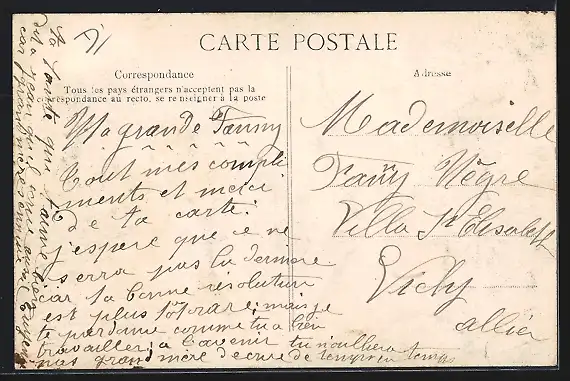 CARTE POSTALE
Correspondance
Tous les pays étrangers n'acceptent pas la
correspondance au recto, se renseigner à la poste
Ma grande Fanny
tout mes compli
ments et merci
de ta carte.
j'espère que ce ne
serra pas la dernière
car ta bonne résolution
est plus tôt rare; mais je
te pardonne comme tu a bien
travailler; a l'avenir tu n'oulliera
pas grand mère de temps en temps
Adresse
Mademoiselle
Fany Nègre
Villa St Elisabeth
Vichy
allier
ta tante qui t'aime bien
car grand mère